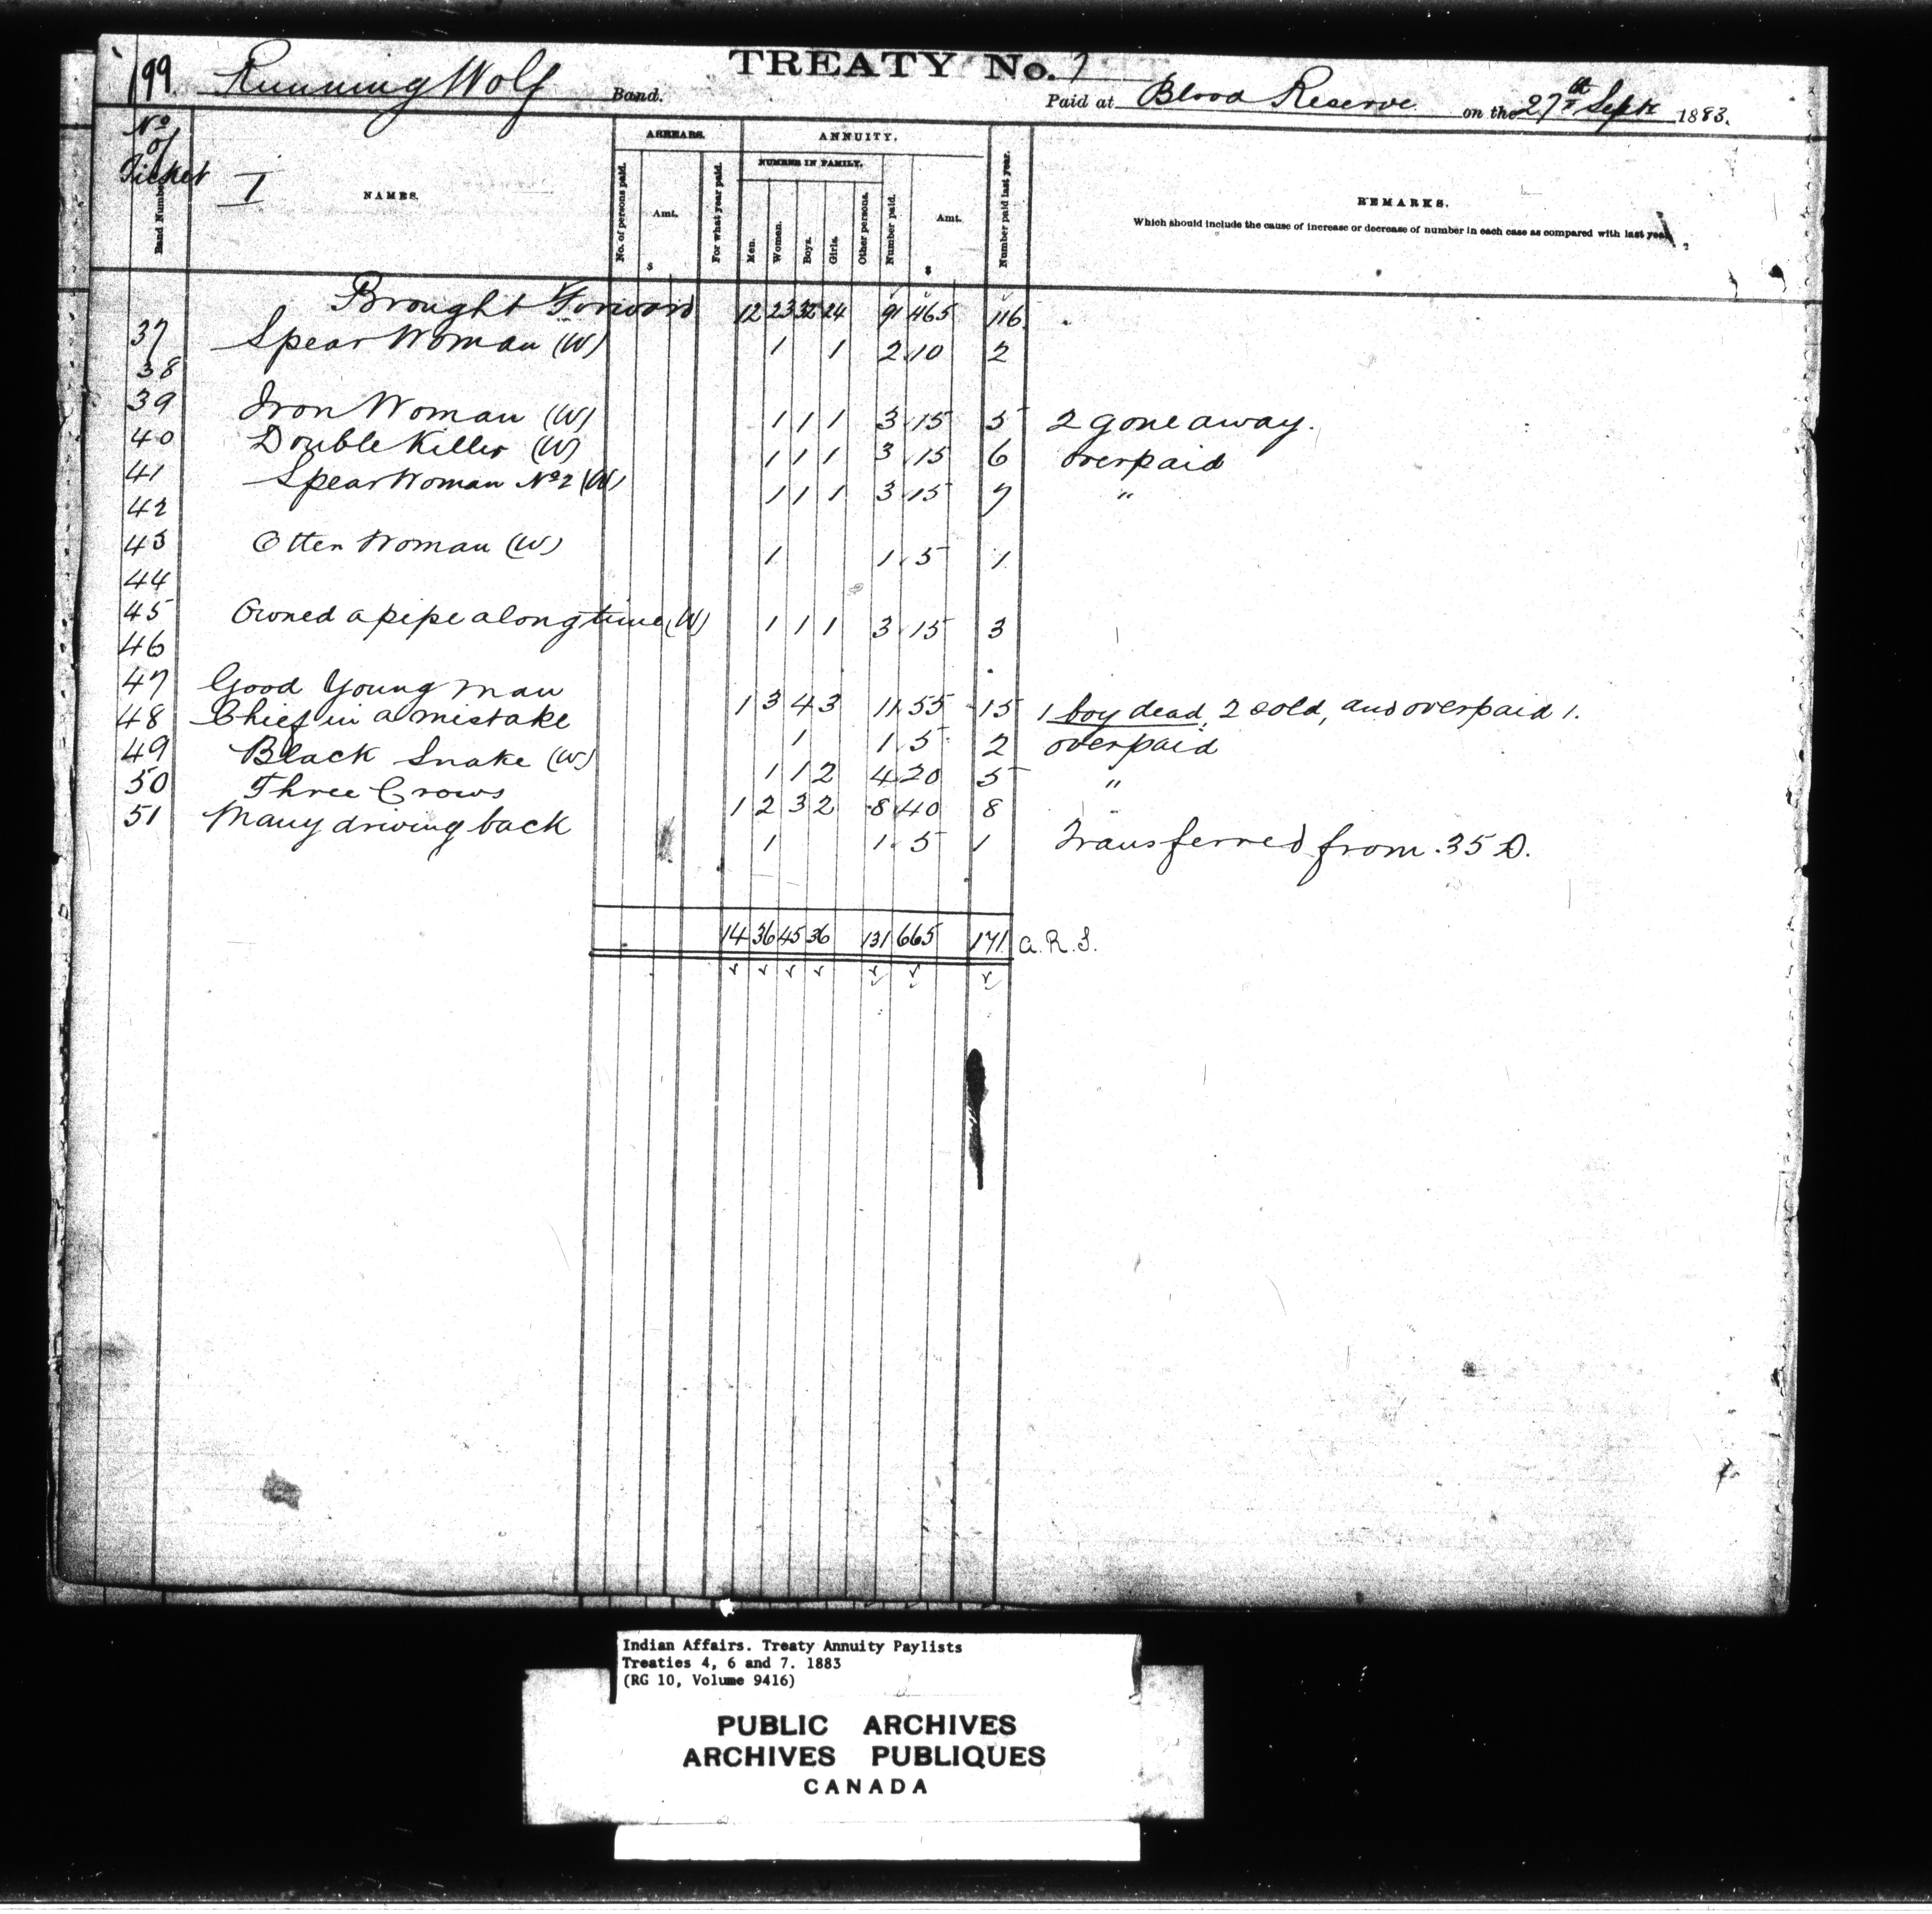 TREATY No. 7
199. Running Wolf Band. Paid at Blood Reserve on the 27th Sept 1883.
No of Ticket
Band Number
I NAMES.
ARREARS.
No. of persons paid.
Amt.
$
For what year paid.
ANNUITY.
NUMBER IN FAMILY.
Men.
Women.
Boys.
Girls.
Other persons.
Number paid.
Amt.
$
Number paid last year.
REMARKS.
Which should include the cause of increase or decrease of number in each case as compared with last year.
Brought Forward 12 23 32 24 91 465 116
37 Spear Woman (W) 1 1 2 10 2
38
39 Iron Woman (W) 1 1 1 3 15 5 2 gone away.
40 Double Killer (W) 1 1 1 3 15 6 overpaid
41 Spear Woman No 2 (W) 1 1 1 3 15 7 "
42
43 Otter Woman (W) 1 1 5 1
44
45 Owned a pipe a long time (W) 1 1 1 3 15 3
46
47 Good Young Man 1 3 4 3 11 55 15 1 boy dead, 2 sold, and overpaid 1.
48 Chief in a mistake 1 1 5 2 overpaid
49 Black Snake (W) 1 1 2 4 20 5 "
50 Three Crows 1 2 3 2 8 40 8
51 Many driving back 1 1 5 1 Transferred from 35 D.
14 36 45 36 131 665 171 a.R.S.
Indian Affairs. Treaty Annuity Paylists
Treaties 4, 6 and 7. 1883
(RG 10, Volume 9416)
PUBLIC ARCHIVES
ARCHIVES PUBLIQUES
CANADA